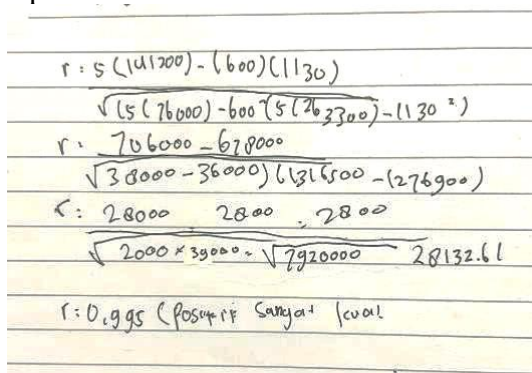 r : 5 (141200) - (600) (1130)
√(5 (76000) - 600² (5 (263300) - (1130²)
r : 706000 - 678000
√38000 - 36000) (1316500 - (276900)
r : 28000 2800 : 2800
√2000 × 39000 = √7920000 28132.61
r : 0,995 (Positif Sangat kuat